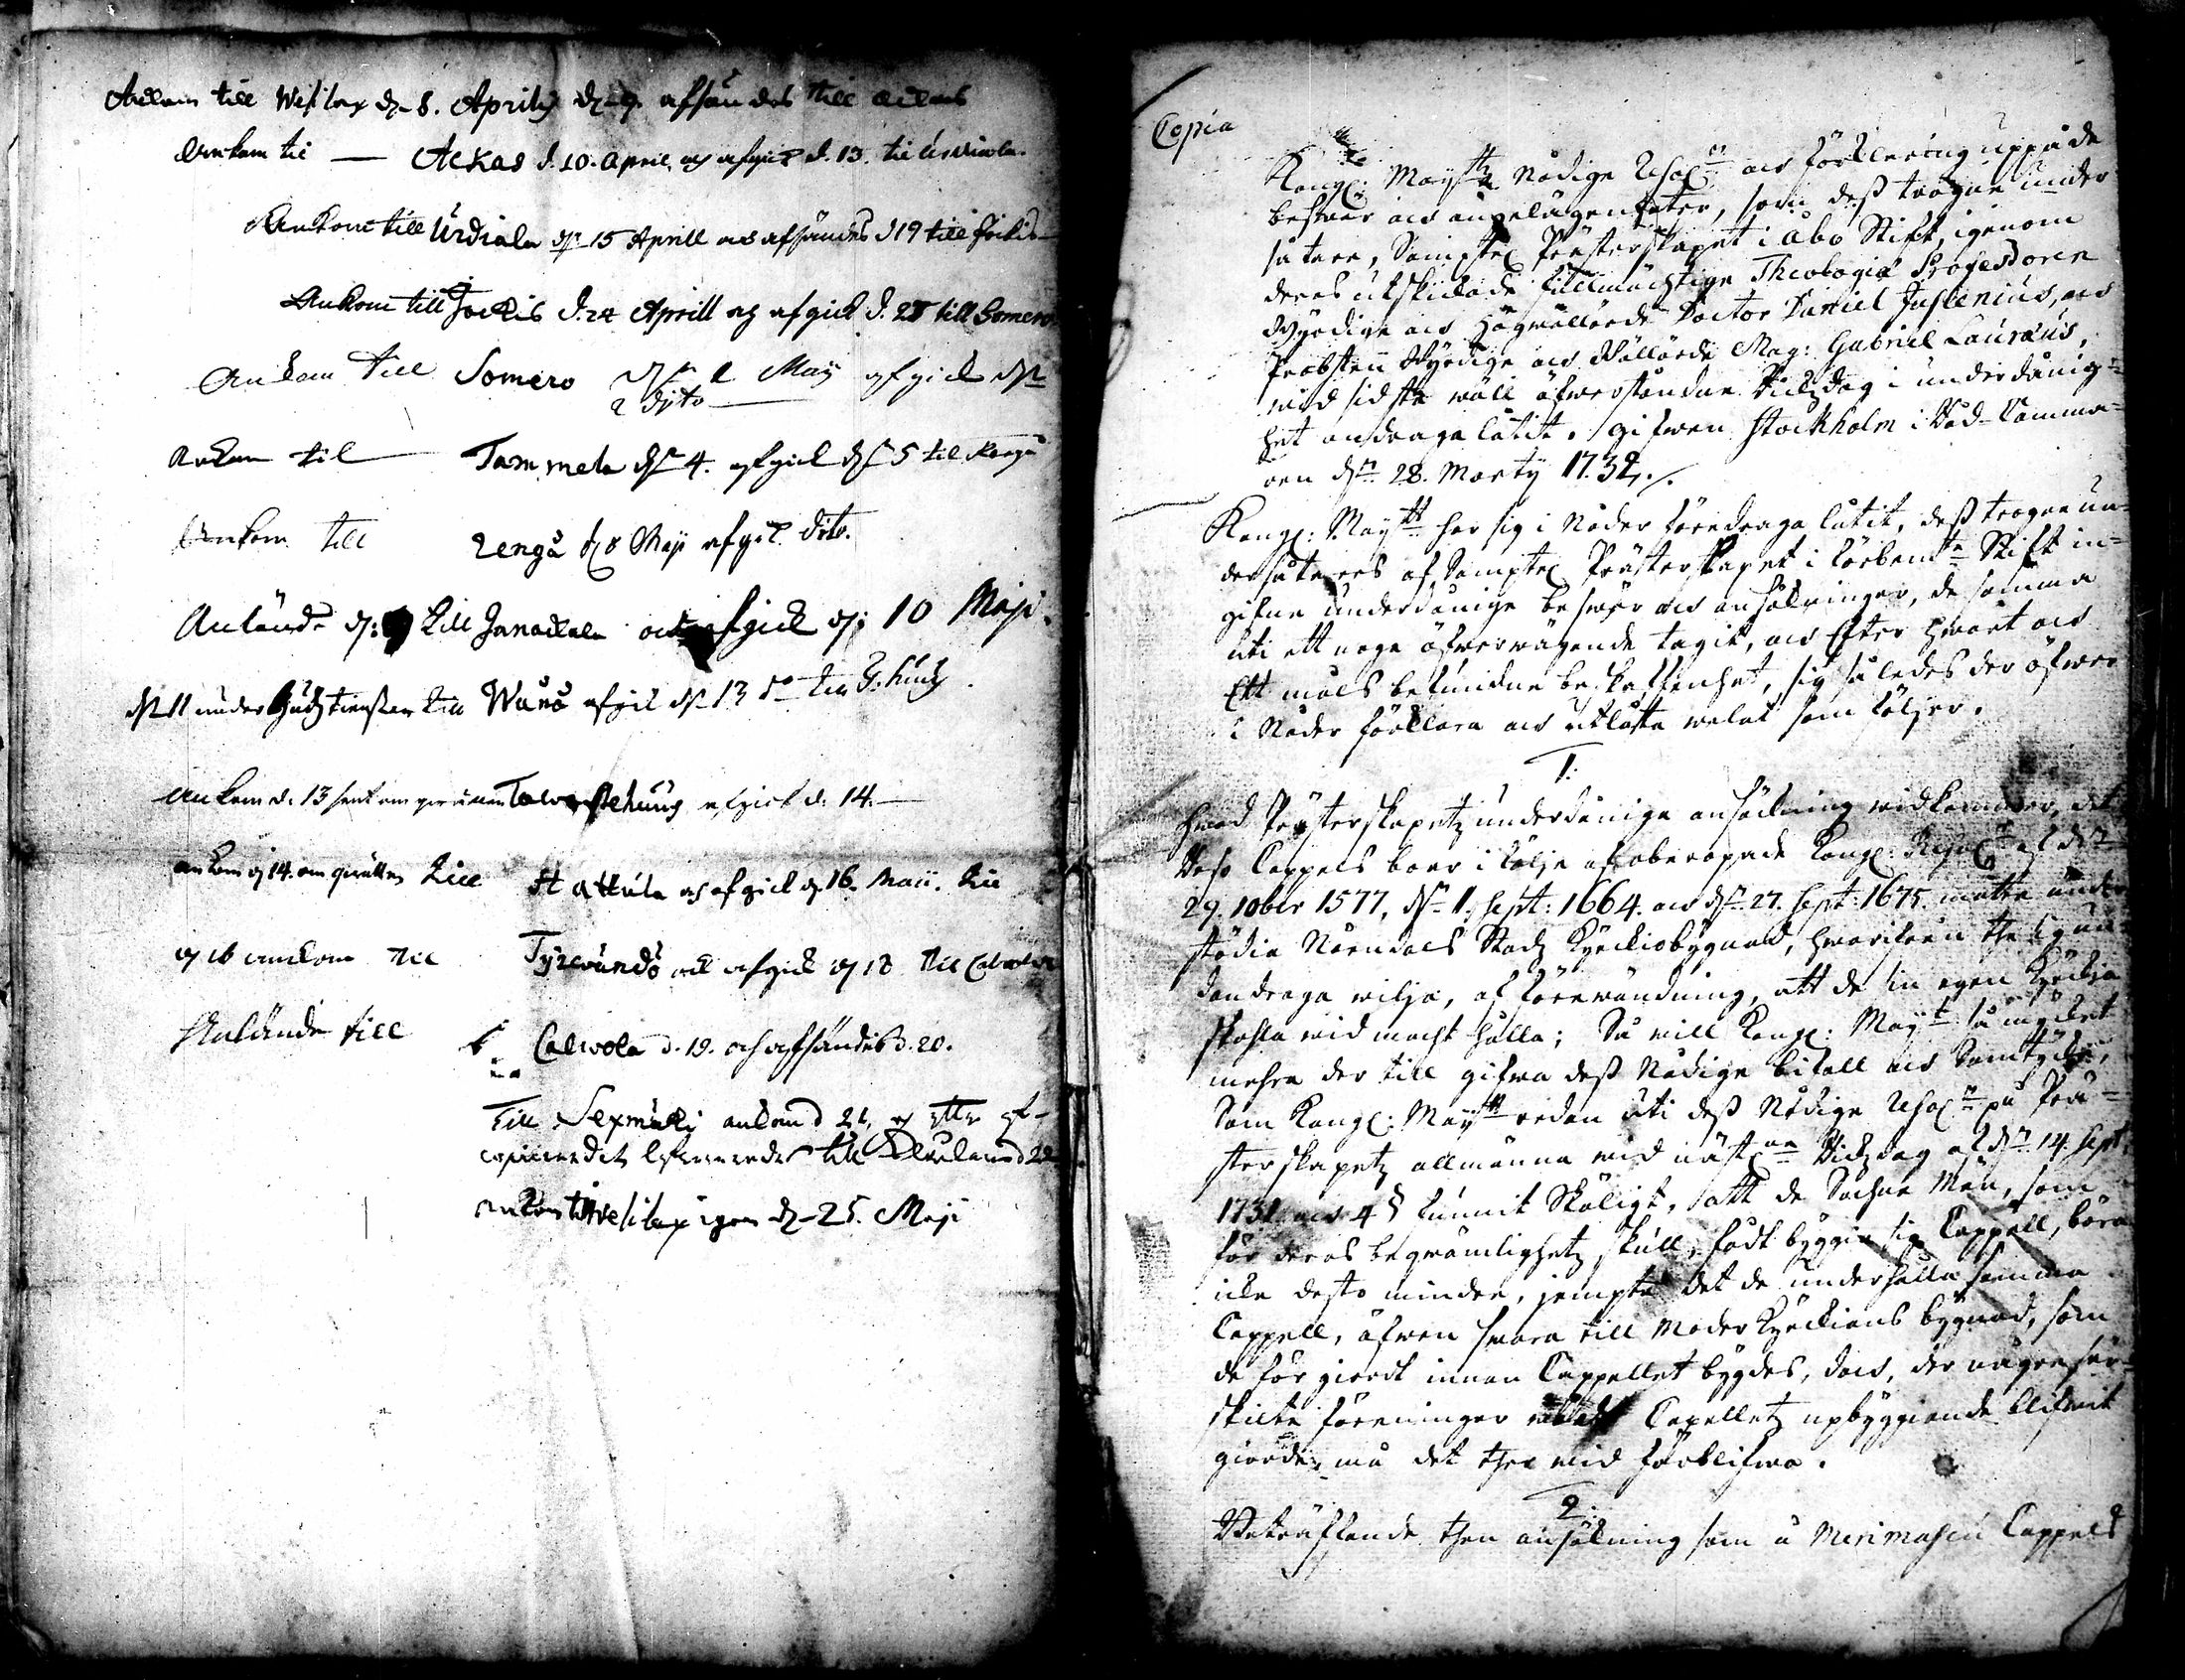 Ankom till Wesilax d. 8. Aprilis d. 9. afsändes till Ackas
Ankom til — Ackas d. 10. April och afgick d. 13. til Urdiala.
Ankom till Urdiala dn 15 Aprill och afsändes d 19 till Jockis
Ankom till Jockis d. 24 Aprill och afgick d. 28 till Somero
Ankom till Somero dn 1 Maij afgick dn
2 dito
Ankom til Tammela dn 4. afgick dn 5 til Rengå
Ankom till Rengå d 8 Maji afgick dito.
Anlände d: 9 till Janackala och afgick d: 10 Maji.
dn 11 under Gudztiensten till Wånå afgick dn 13 do till T:huus
Ankom d. 13 sent om qwällen Tawastehuus afgick d. 14. —
ankom d 14. om qwällen till Hattula och afgick d. 16. Maii. till
d 16 ankom till Tyrwändö och afgick d 18 till Calwola
Anlände till Calwola d. 19. och afsändes d. 20.
Till Sexmäki ankom d 21, och
till d 22
ankom till Wesilax igen d. 25. Maji
Copia
Kongl: Maytz Nådige Resol:n och förklaring uppå de
beswär och angelägenheter, som dess trogne under-
såtare, Samptel. Prästerskapet i Åbo Stift, igenom
deras utskickade fullmächtige Theologiæ Professoren
Wyrdige och Högwällärde Doctor Daniel Juslenius, och
Probsten Wyrdige och Wällärde Mag: Gabriel Lauræus,
wid sidsta wäll öfwerståndne Rickzdag i underdånig-
het andraga låtit. Gifwen Stockholm i Råd-Camma-
ren dn 28. Martij 1732./.
Kongl: Maytt har sig i Nåder föredraga låtit, dess trogne un-
dersåtares af Samptel. Prästerskapet i förbem:te Stift in-
gifne underdånige beswär och ansökningar, de samma
uti ett noga öfwerwägande tagit, och efter hwart och
Ett måls befundne beskaffenhet, sig således der öfwer
i Nåder förklara och utlåta welat som följer.
1:
Hwad Prästerskapetz underdåniga ansökning widkommer, det
Capels boer i följe af åberopade Kongl: Resol:r af dn
29. 10ber 1577, dn 1. Sept: 1664. och dn 27. Sept: 1675. måtte under-
stödia Nårendals Stadz Kyrckiobygnad, hwarifrån the sig un-
dandraga wilja, af förewändning, att de sin egen Kyrckia
skohla wid macht hålla; Så will Kongl: Maytt så mycket
mehra der till gifwa dess Nådige bifall och Samtycke,
Som Kongl: Maytt redan uti dess Nådige Resol:n på Prä-
sterskapetz allmänna wid näst:ne Rickzdag af dn 14. Sept
1731 och 4 § funnit Skäligt, att de Sochne Män, som
för deras beqwämlighetz skull, fådt byggia sig Cappell, böra
icke desto mindre, jempte det de underhålla samma
Cappell, äfwen swara till Moder Kyrckians bygnad, som
de för giordt innan Cappellet bygdes, doch, der någre sär-
skilte föreningar wid Capelletz upbyggiande blifwit
giorde, må det ther wid förblifwa.
2:
Beträffande then ansökning som å Merimasku Cappels